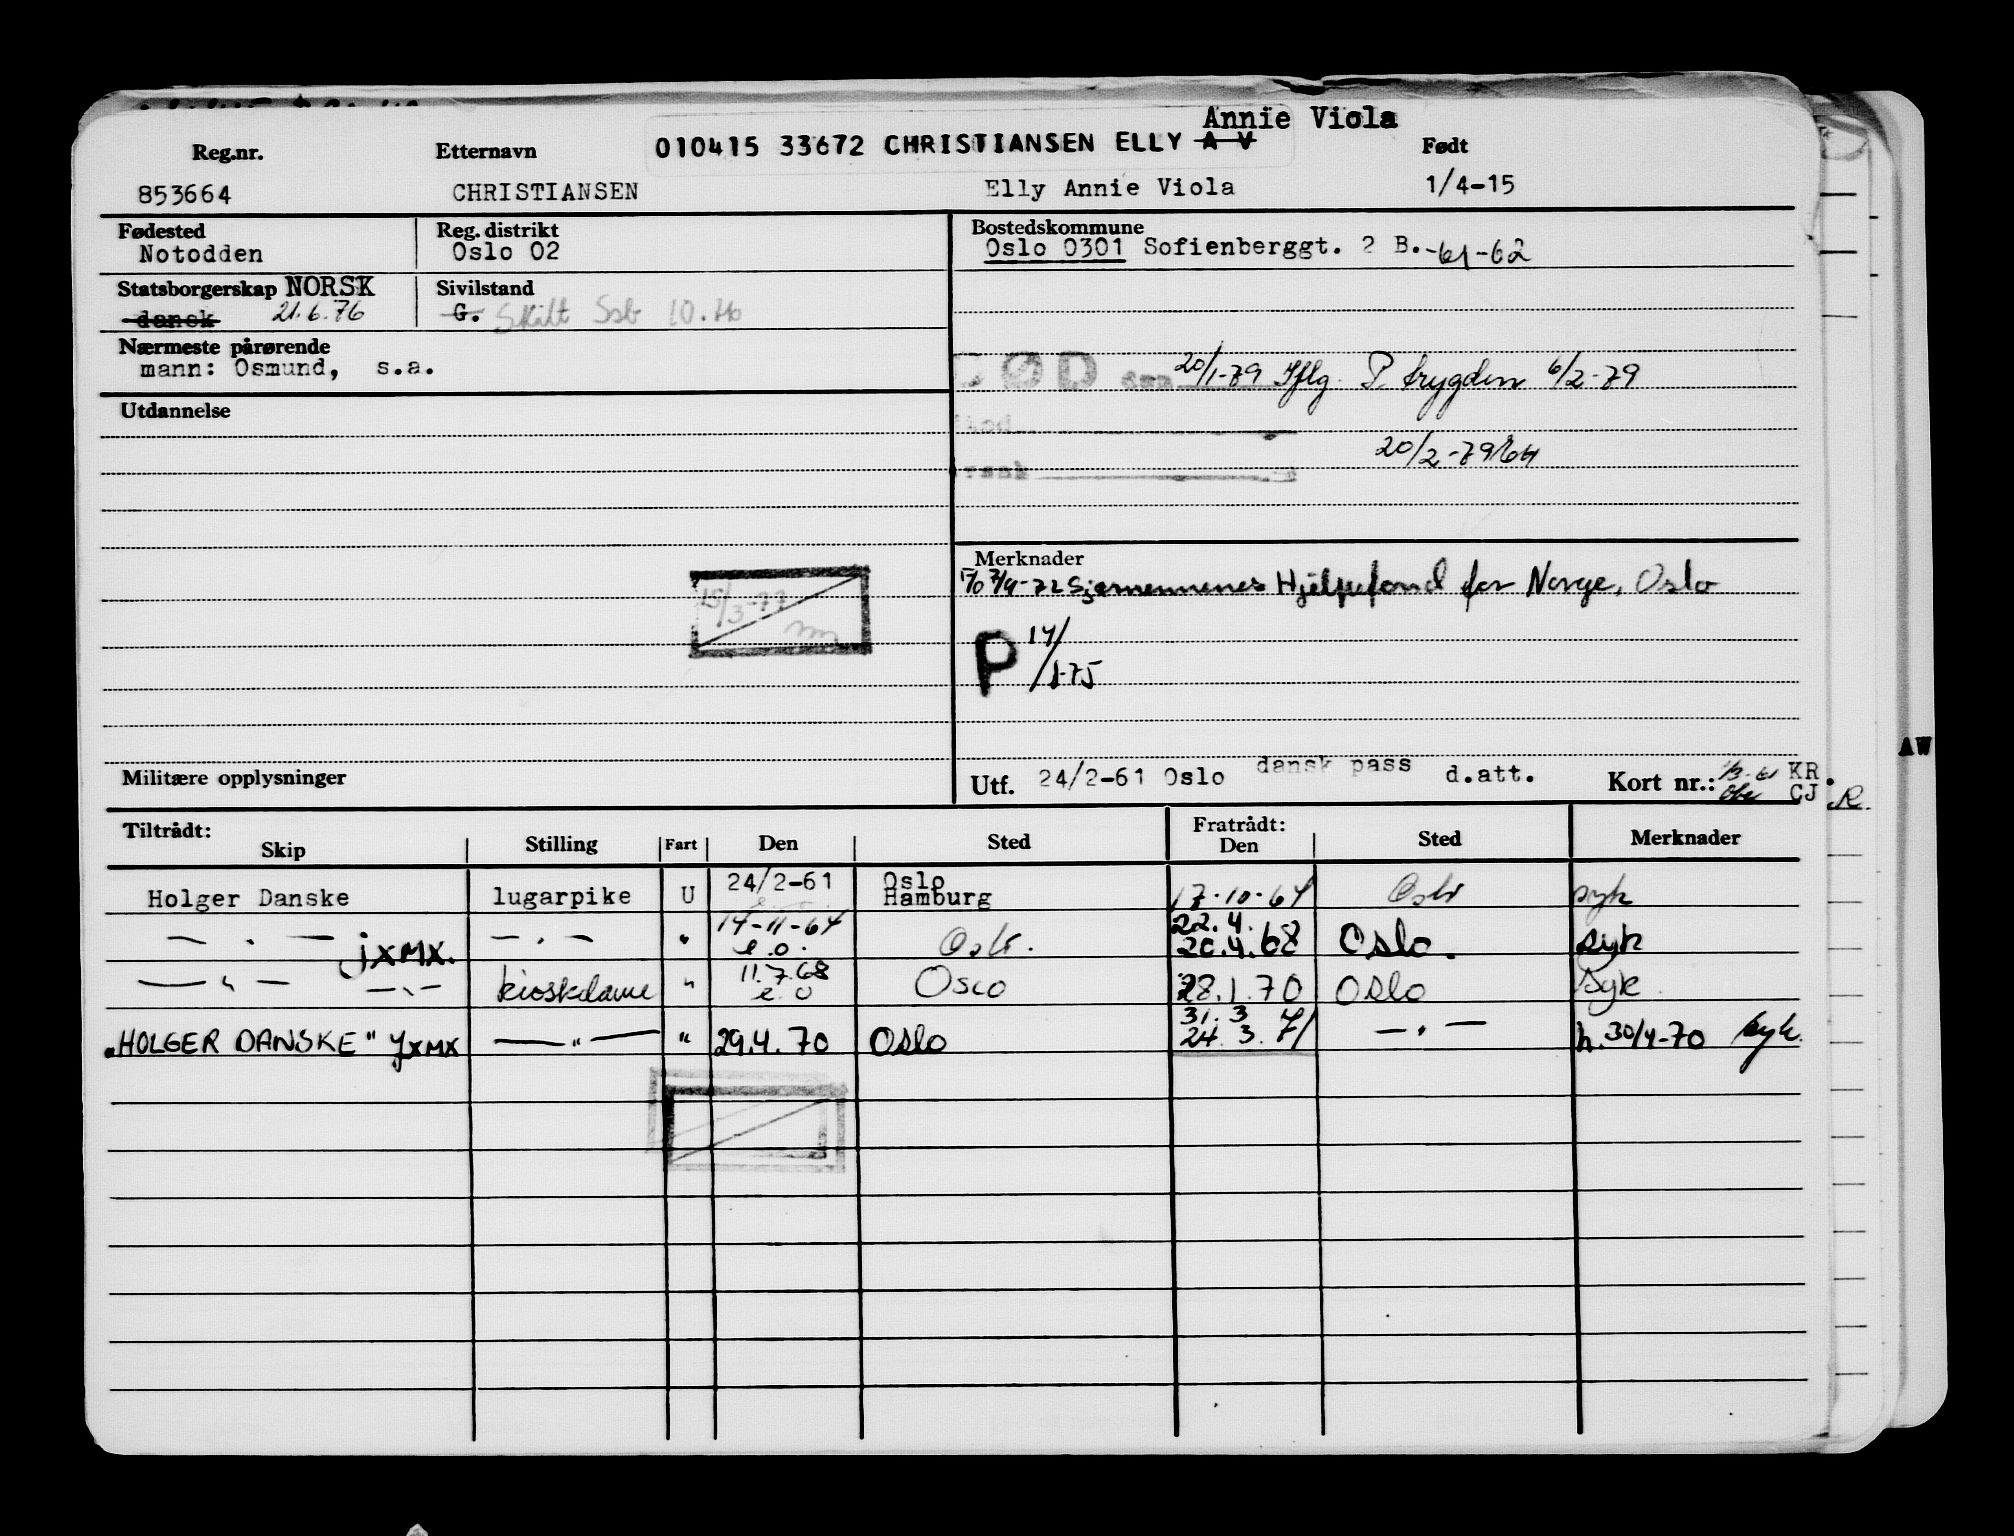 Annie Viola
010415 33672 CHRISTIANSEN ELLY A V
Reg.nr. Etternavn Født
853664 CHRISTIANSEN Elly Annie Viola 1/4-15
Fødested Reg. distrikt Bostedskommune
Notodden Oslo 02 Oslo 0301 Sofienberggt. 2 B.-61-62
Statsborgerskap NORSK Sivilstand
dansk 21.6.76 G. Skilt Ssb 10.76
Nærmeste pårørende
mann: Osmund, s.a.
20/1-79 Iflg. P. trygden 6/2-79
Utdannelse
20/2-79
Merknader
7/4-72 Sjømennenes Hjelpefond for Norge, Oslo
15/3-77
P 14/1-75
Militære opplysninger
Utf. 24/2-61 Oslo dansk pass d.att. Kort nr.: KR.
CJ R.
AW
Tiltrådt: Fratrådt:
Skip Stilling Fart Den Sted Den Sted Merknader
Holger Danske lugarpike U 24/2-61 Oslo Hamburg 17-10-64 Oslo syk
— " — jxmx. — " — " 14-11-64 e.o. Oslo. 22.4. 20.4.68 Oslo. syk
— " — — " — kioskdame " 11.7.68 e.o Oslo 28.1.70 Oslo syk.
"HOLGER DANSKE" jxmx — " — " 29.4.70 Oslo 31.3 24.3.71 — " — h.30/4-70 syk.